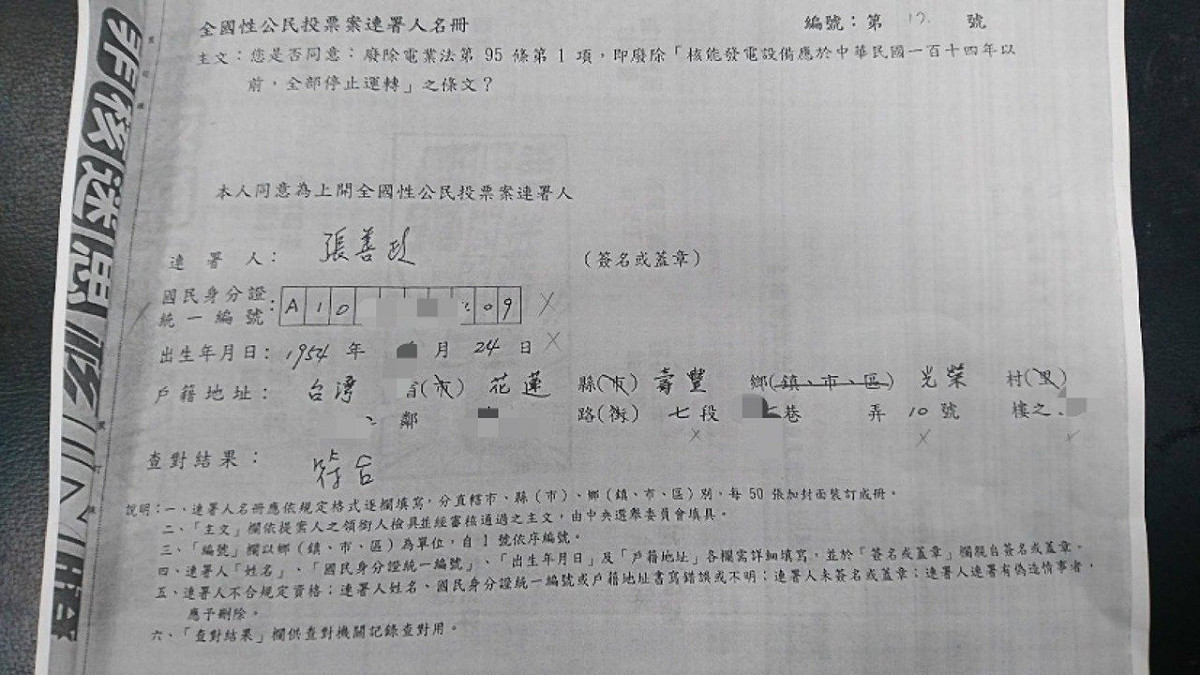 全國性公民投票案連署人名冊 編號：第 17. 號
主文：您是否同意：廢除電業法第 95 條第 1 項，即廢除「核能發電設備應於中華民國一百十四年以
前，全部停止運轉」之條文？
本人同意為上開全國性公民投票案連署人
連署人： 張善政 （簽名或蓋章）
國民身分證
統一編號： A 1 0 0 9
出生年月日： 1954 年 月 24 日
戶籍地址： 台灣 省(市) 花蓮 縣(市) 壽豐 鄉(鎮、市、區) 光榮 村(里)
鄰 路(街) 七段 巷 弄 10 號 樓之
查對結果： 符合
說明：一、連署人名冊應依規定格式逐欄填寫，分直轄市、縣（市）、鄉（鎮、市、區）別，每 50 張加封面裝訂成冊。
二、「主文」欄依提案人之領銜人檢具並經審核通過之主文，由中央選舉委員會填具。
三、「編號」欄以鄉（鎮、市、區）為單位，自 1 號依序編號。
四、連署人「姓名」、「國民身分證統一編號」、「出生年月日」及「戶籍地址」各欄需詳細填寫，並於「簽名或蓋章」欄親自簽名或蓋章。
五、連署人不合規定資格；連署人姓名、國民身分證統一編號或戶籍地址書寫錯誤或不明；連署人未簽名或蓋章；連署人連署有偽造情事者，
應予刪除。
六、「查對結果」欄供查對機關記錄查對用。
非核迷思